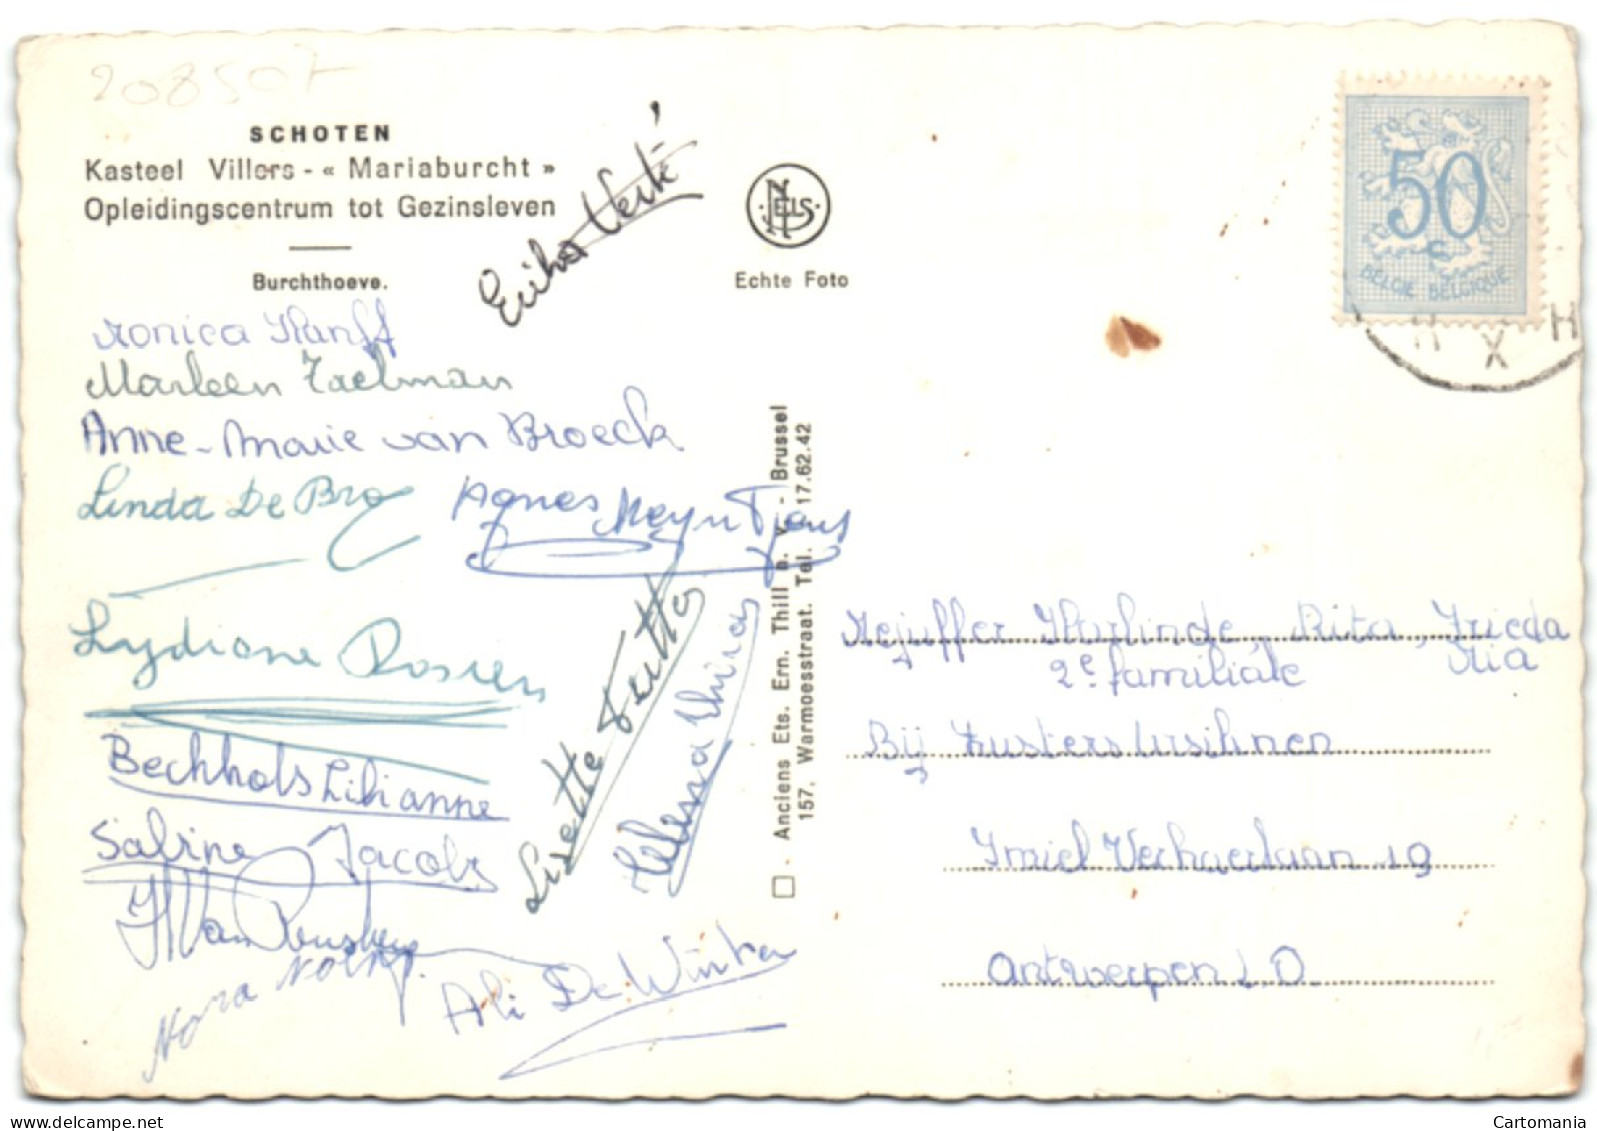 208507
SCHOTEN
Kasteel Villers - « Mariaburcht »
Opleidingscentrum tot Gezinsleven
Burchthoeve.
Erika Verté
NELS
Echte Foto
50 c
BELGIE BELGIQUE
H X H
Monica Hanff
Marleen Taelman
Anne-Marie van Broeck
Linda De Bro
Agnes Meyntjens
Lydiane Rosiers
Bechhols Lilianne
Sabine Jacobs
Van
Nora
Ali De Winter
Lisette
Anciens Ets. Ern. Thill n. V. - Brussel
157, Warmoesstraat. Tel. 17.62.42
Mejuffer Herlinde, Rita, Frieda
2e familiale Mia
Bij Zusters Ursilinen
Emiel Verhaerlaan 19
Antwerpen L.O.
Cartomania